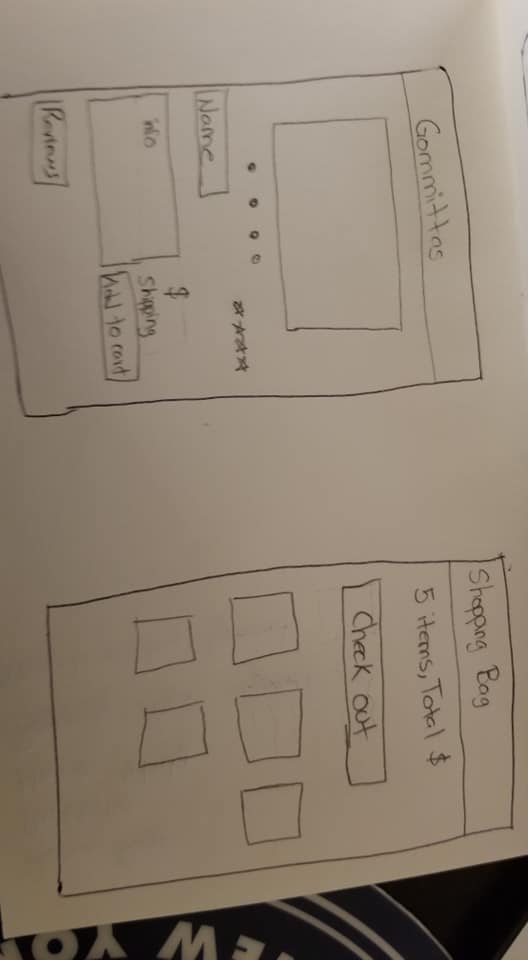 Gommittas
Name
info
$
Shipping
Add to cart
Reviews
Shopping Bag
5 items, Total $
Check out
NEW YO